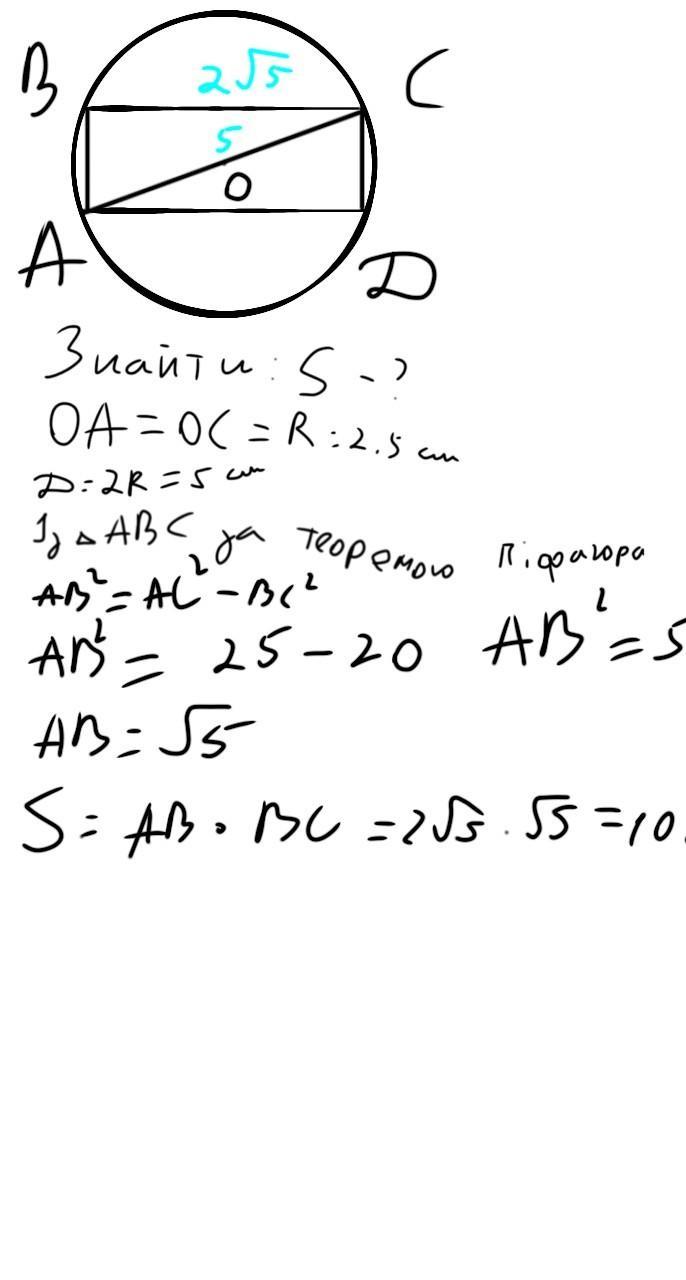 B 2√5 C
5
O
A D
Знайти: S - ?
OA = OC = R = 2.5 cm
D = 2R = 5 cm
Із △ ABC за теоремою Піфагора
AB² = AC² - BC²
AB² = 25 - 20 AB² = 5
AB = √5
S = AB · BC = 2√5 · √5 = 10.